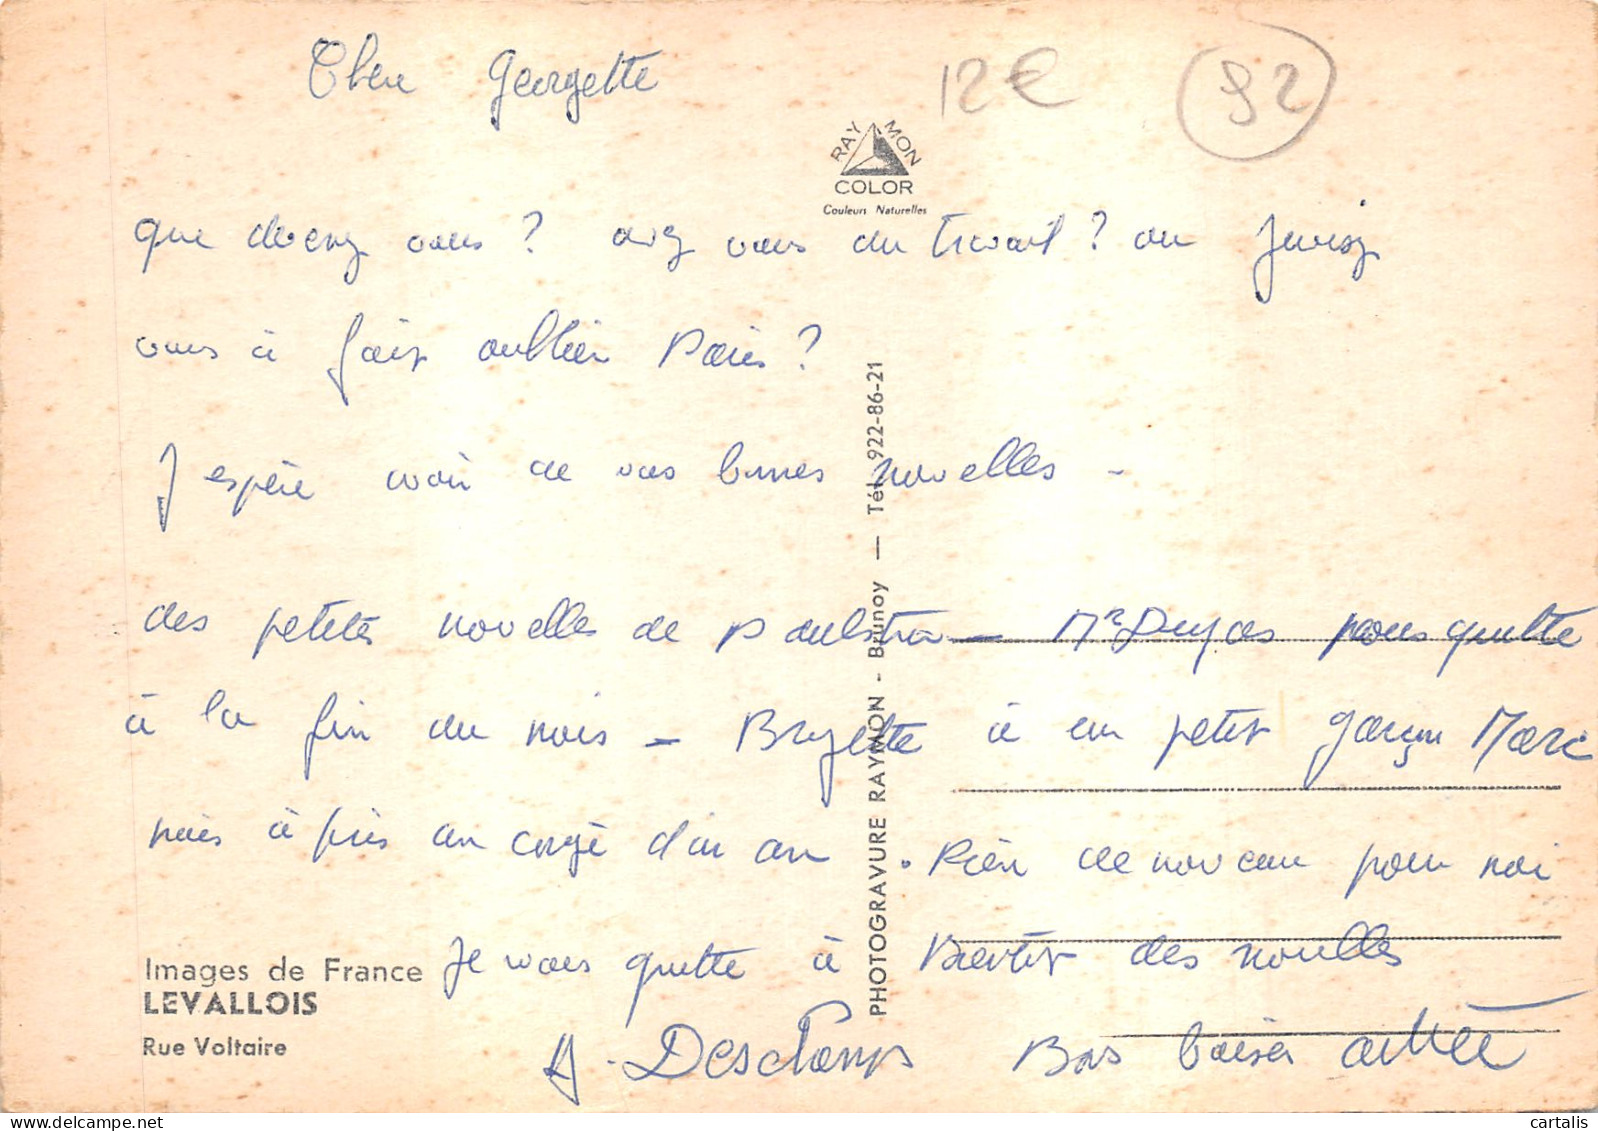 Chere Georgette
12 €
92
RAYMON
COLOR
Couleurs Naturelles
que devenez vous ? avez vous du travail ? ou Juvisy
vous à fait oublier Paris ?
J espère avoir de vos bonnes nouvelles -
des petites nouvelles de - Mr nous quitte
à la fin du mois - à eu un petit garçon Marc
mais à pris un congé d'un an . Rien de nouveau pour moi
Je vous quitte à Bientot des nouvelles
A. Deschamps Bons baisers
PHOTOGRAVURE RAYMON - Brunoy — Tél. 922-86-21
Images de France
LEVALLOIS
Rue Voltaire
cartalis.com